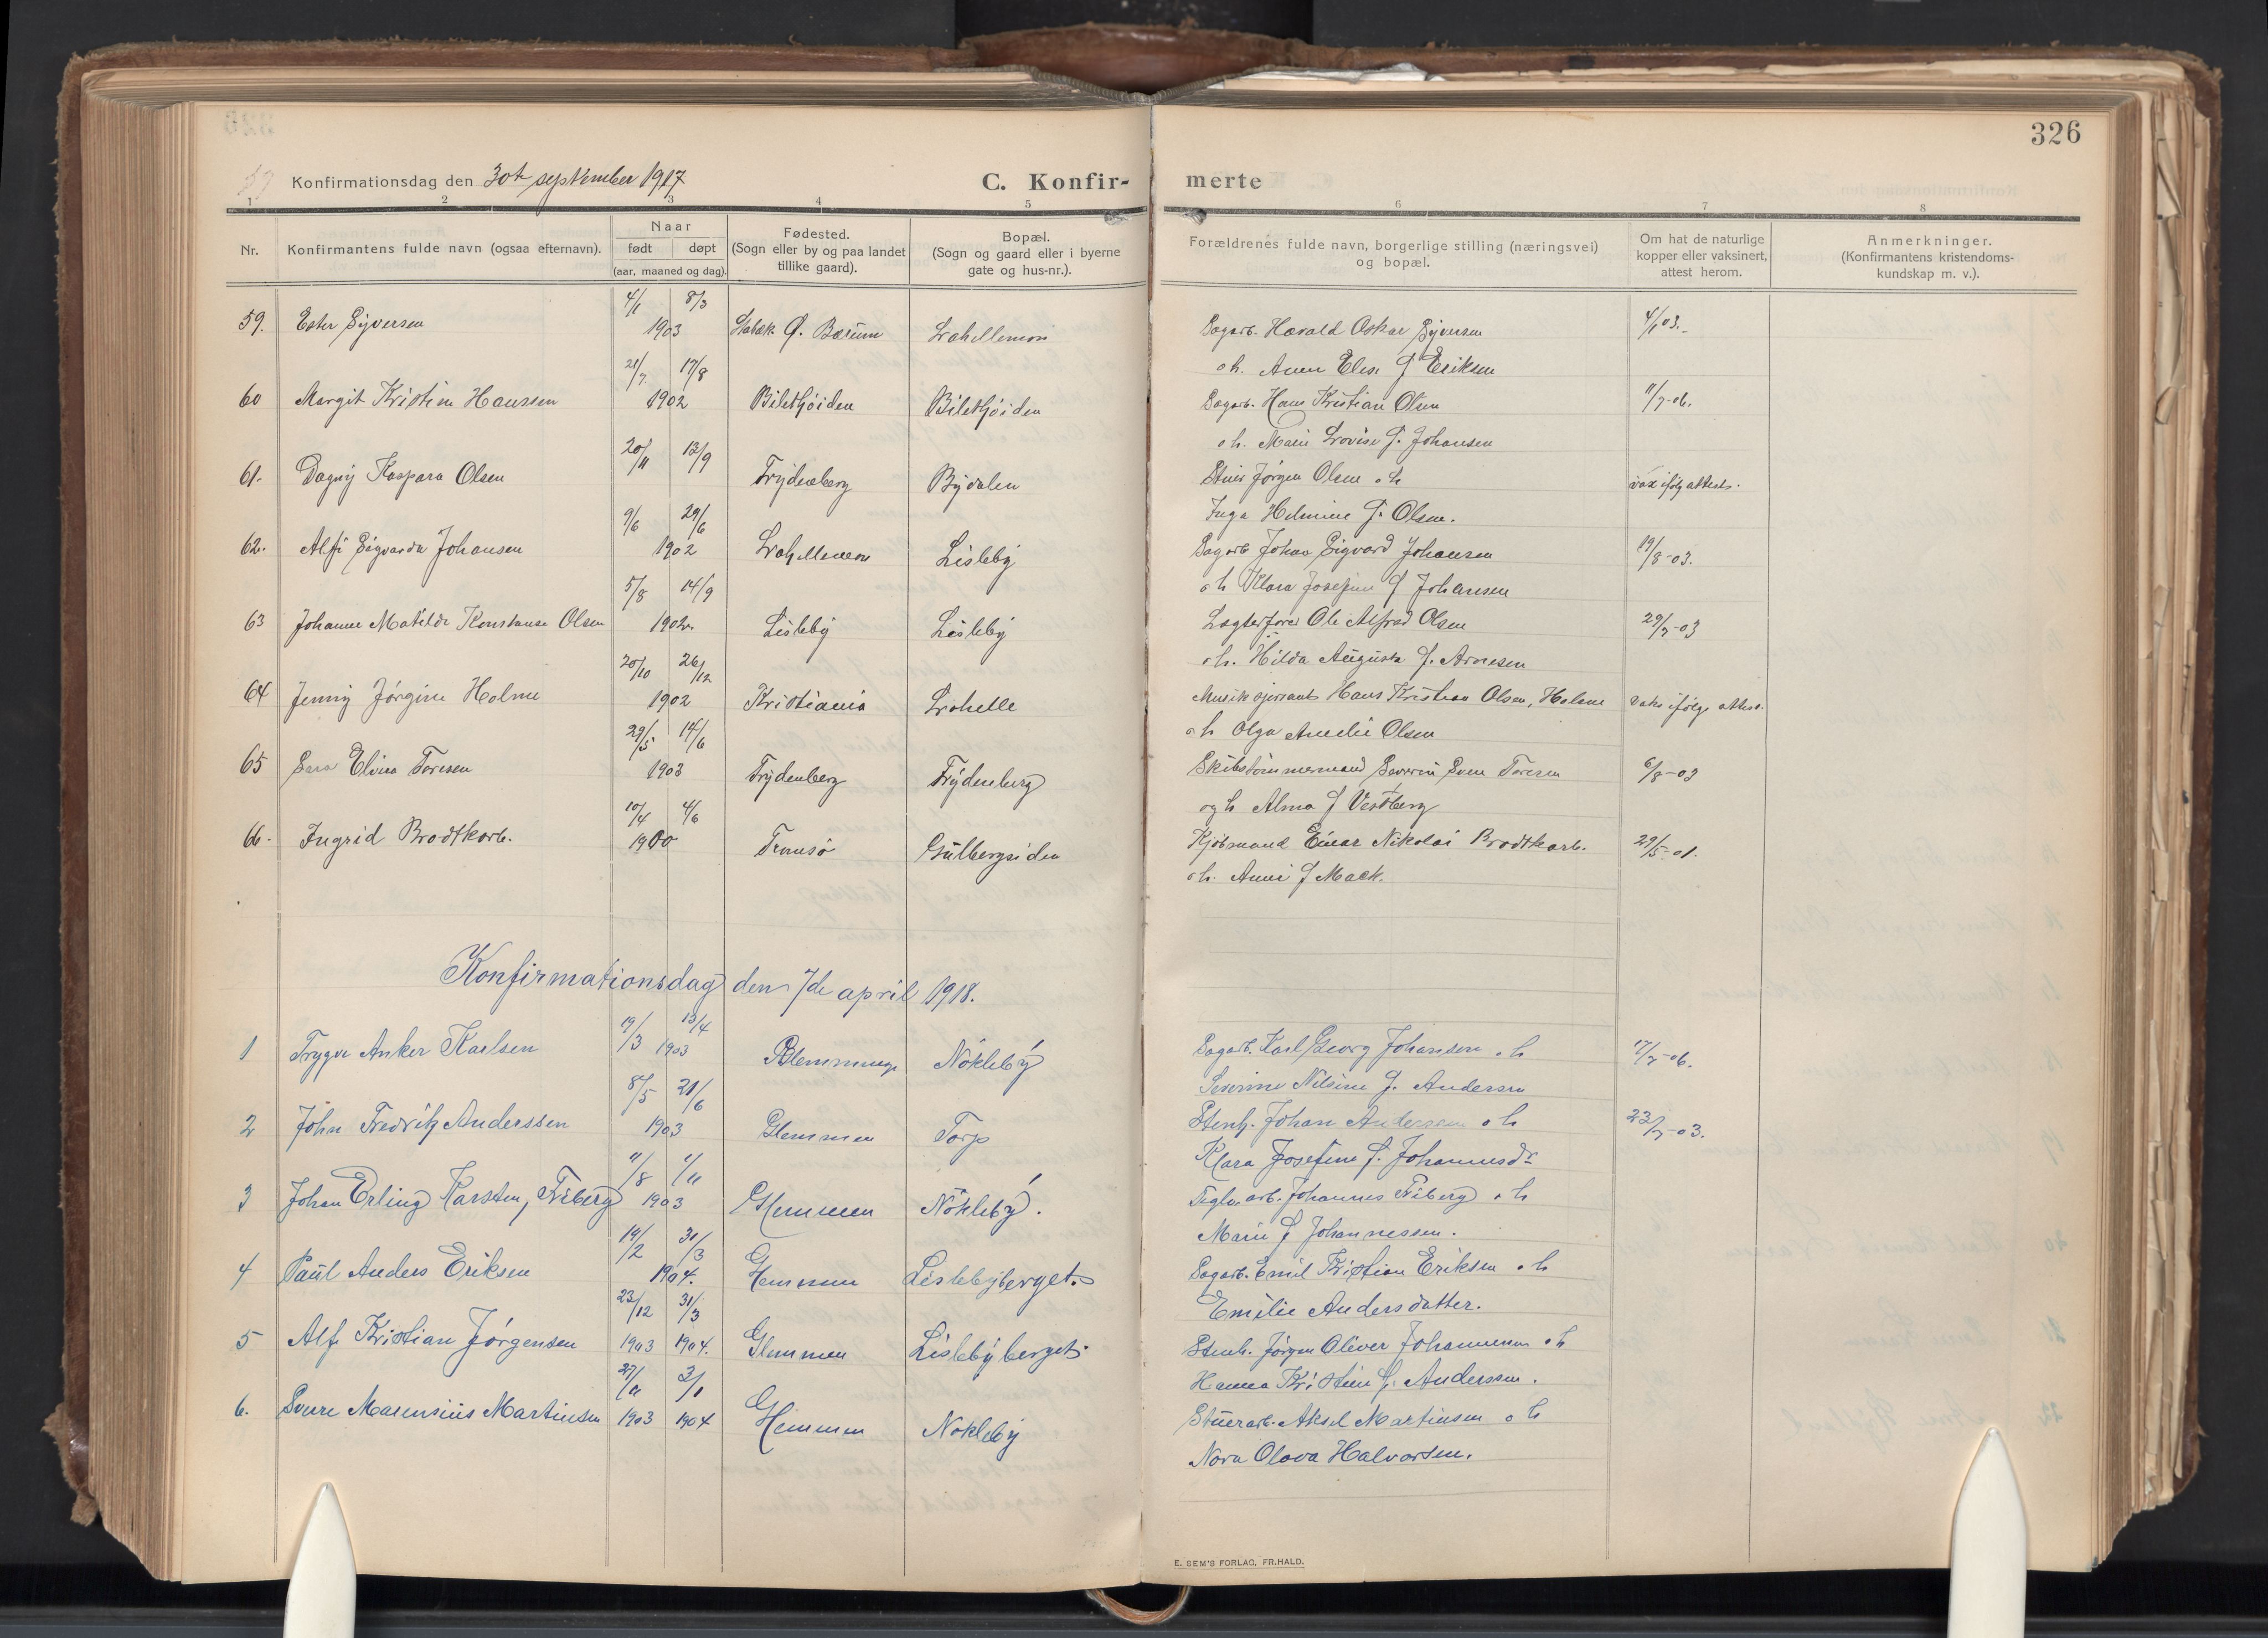 326
Konfirmationsdag den 30te september 1917
C. Konfir-
merte
1 2 3 4 5 6 7 8
Nr.
Konfirmantens fulde navn (ogsaa efternavn).
Naar
født døpt
(aar, maaned og dag).
Fødested.
(Sogn eller by og paa landet
tillike gaard).
Bopæl.
(Sogn og gaard eller i byerne
gate og hus-nr.).
Forældrenes fulde navn, borgerlige stilling (næringsvei)
og bopæl.
Om hat de naturlige
kopper eller vaksinert,
attest herom.
Anmerkninger.
(Konfirmantens kristendoms-
kundskap m. v.).
4/1 8/3
59. Ester Syversen 1903 Stabæk Ø. Bærum Lahellemoen Sagarb. Harald Oskar Syversen 4/1 03.
21/7 17/8 o h. Anna Elise f Eriksen
60 Margit Kristine Hanssen 1902 Biletthøiden Biletthøiden Sagarb. Hans Kristian Olsen 11/7-06.
o h. Marie Lovise f. Johansen
20/11 13/9
61. Dagny Kaspara Olsen Trydenberg Bydalen Stuer Jørgen Olsen o h vax ifølg attest.
9/6 29/6 Inga Helmine f. Olsen.
62. Alfi Sigvarda Johansen 1902 Lahellemoen Lisleby Sagarb Johan Sigvard Johansen 19/8-03.
5/8 14/9 o h Klara Josefine f Johansen
63 Johanne Matilde Konstanse Olsen 1902. Lisleby Lisleby Lægterfører Ole Alfred Olsen 29/7-03
20/10 26/12 o h. Hilda Augusta f. Arnesen
64 Jenny Jørgine Holme 1902 Kristiania Lahelle Musiksjersant Hans Kristian Olsen, Holme vaks ifølge attest.
29/5 14/6 o h Olga Amelie Olsen
65 Sara Elvira Toresen 1903 Trydenberg Trydenberg Skibstømmermand Severin Sven Toresen 6/8-03
10/4 4/6 og h Alma f Vestberg
66. Ingrid Brodtkorb. 1900 Tromsø Gulbergsiden Kjøbmand Einar Nikolai Brodtkorb. 29/5-01.
o h. Anni f Mack.
Konfirmationsdag den 7de april 1918.
19/3 13/4
1 Trygve Anker Karlsen 1903 Glemminge Nøkleby Sagarb. Karl Georg Johansen o h 17/7-06.
8/5 21/6 Severine Nilsine f. Andersen
2 John Fredrik Anderssen 1903 Glemmen Torp Stenh. Johan Andersen o h 23/7-03.
11/8 1/11 Klara Josefine f. Johannesdr
3 Johan Erling Karsten, Friberg 1903 Glemmen Nøkleby. Teglv.arb. Johannes Friberg o h
14/2 31/3 Marie f Johannessen.
4 Paul Anders Eriksen 1904. Glemmen Lislebyberget. Sagarb. Emil Kristian Eriksen o h
23/12 31/3 Emilie Andersdatter.
5 Alf Kristian Jørgensen 1903 1904. Glemmen Lislebyberget. Stenh. Jørgen Oliver Johannesen o h
27/11 3/1 Hanna Kristine f. Anderssen.
6. Sverre Marensius Martinsen 1903 1904 Glemmen Nøkleby Stuerarb. Aksel Martinsen o h
Nora Olava Halvorsen.
E. SEM'S FORLAG, FR.HALD.